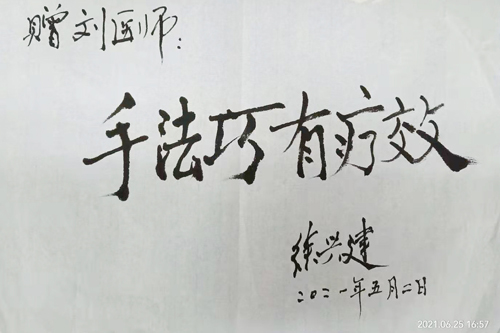 赠刘医师：
手法巧有疗效
徐兴建
二〇二一年五月二日
2021.06.25 16:57